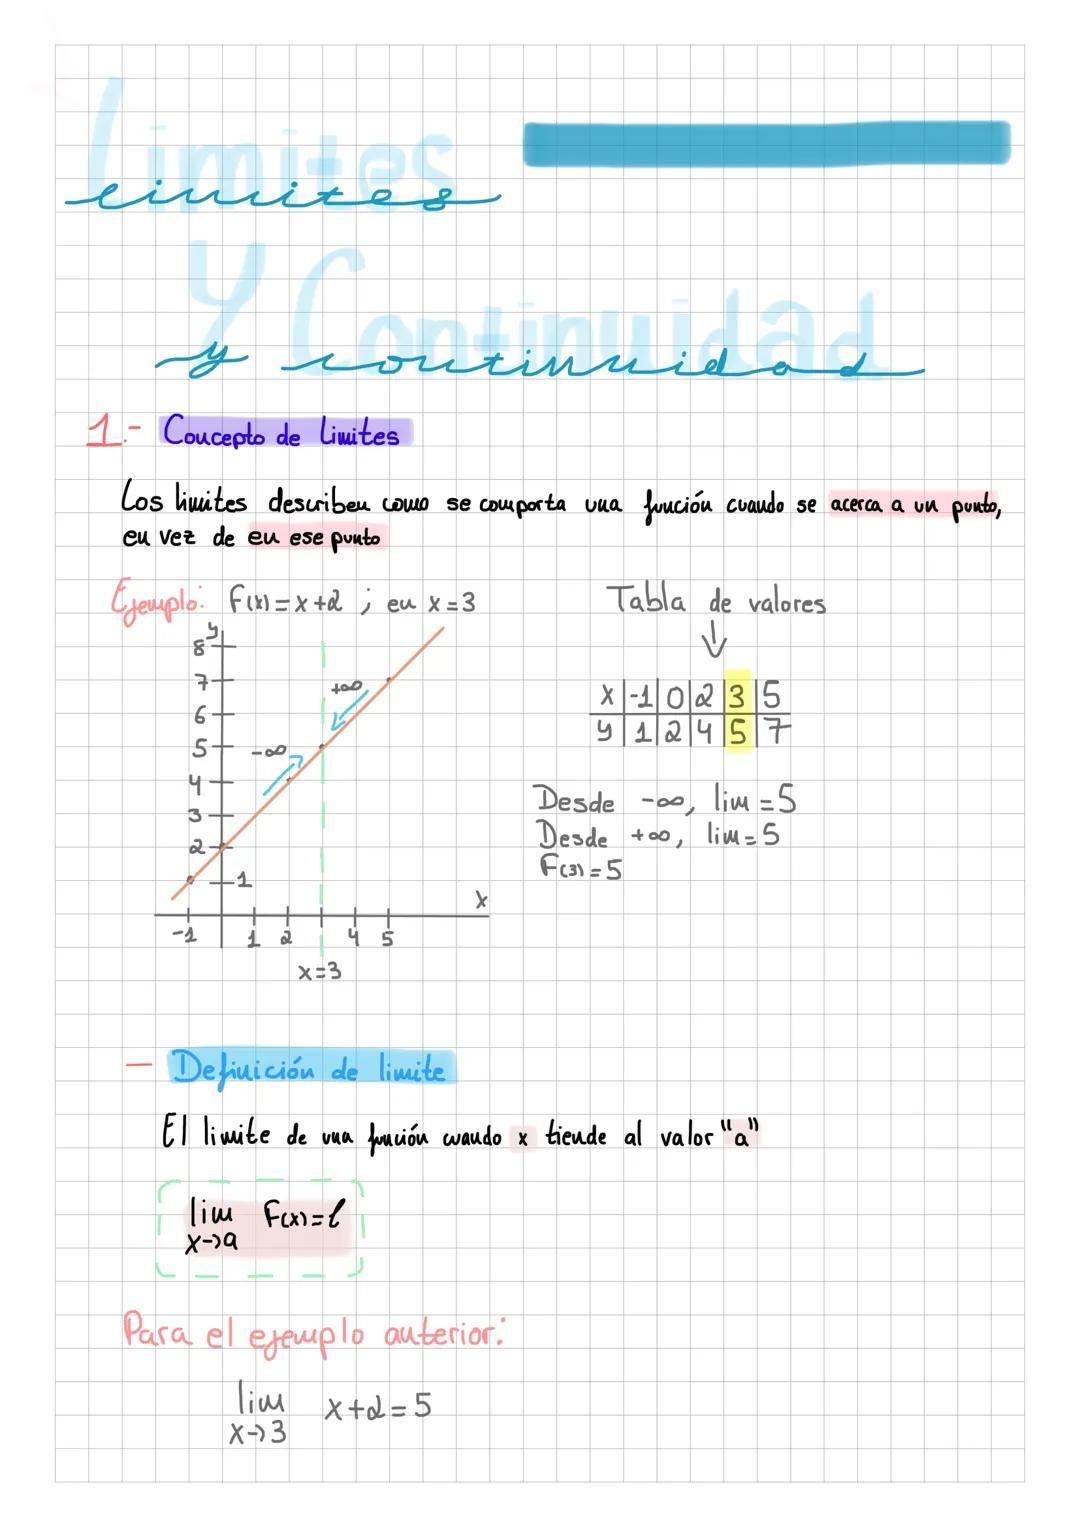 Limites
limites
Y Continuidad
y continuidad
1.- Concepto de limites
Los limites describen como se comporta una función cuando se acerca a un punto,
en vez de en ese punto
Ejemplo: F(x)=x+2 ; en x=3
Tabla de valores
↓
x | -1 | 0 | 2 | 3 | 5
y | 1 | 2 | 4 | 5 | 7
y
8
7
6
5
4
3
2
1
+∞
-∞
x
-1 1 2 4 5
x=3
Desde -∞, lim=5
Desde +∞, lim=5
F(3)=5
- Definición de limite
El limite de una función cuando x tiende al valor "a"
lim F(x)=l
x→a
Para el ejemplo anterior:
lim x+2=5
x→3